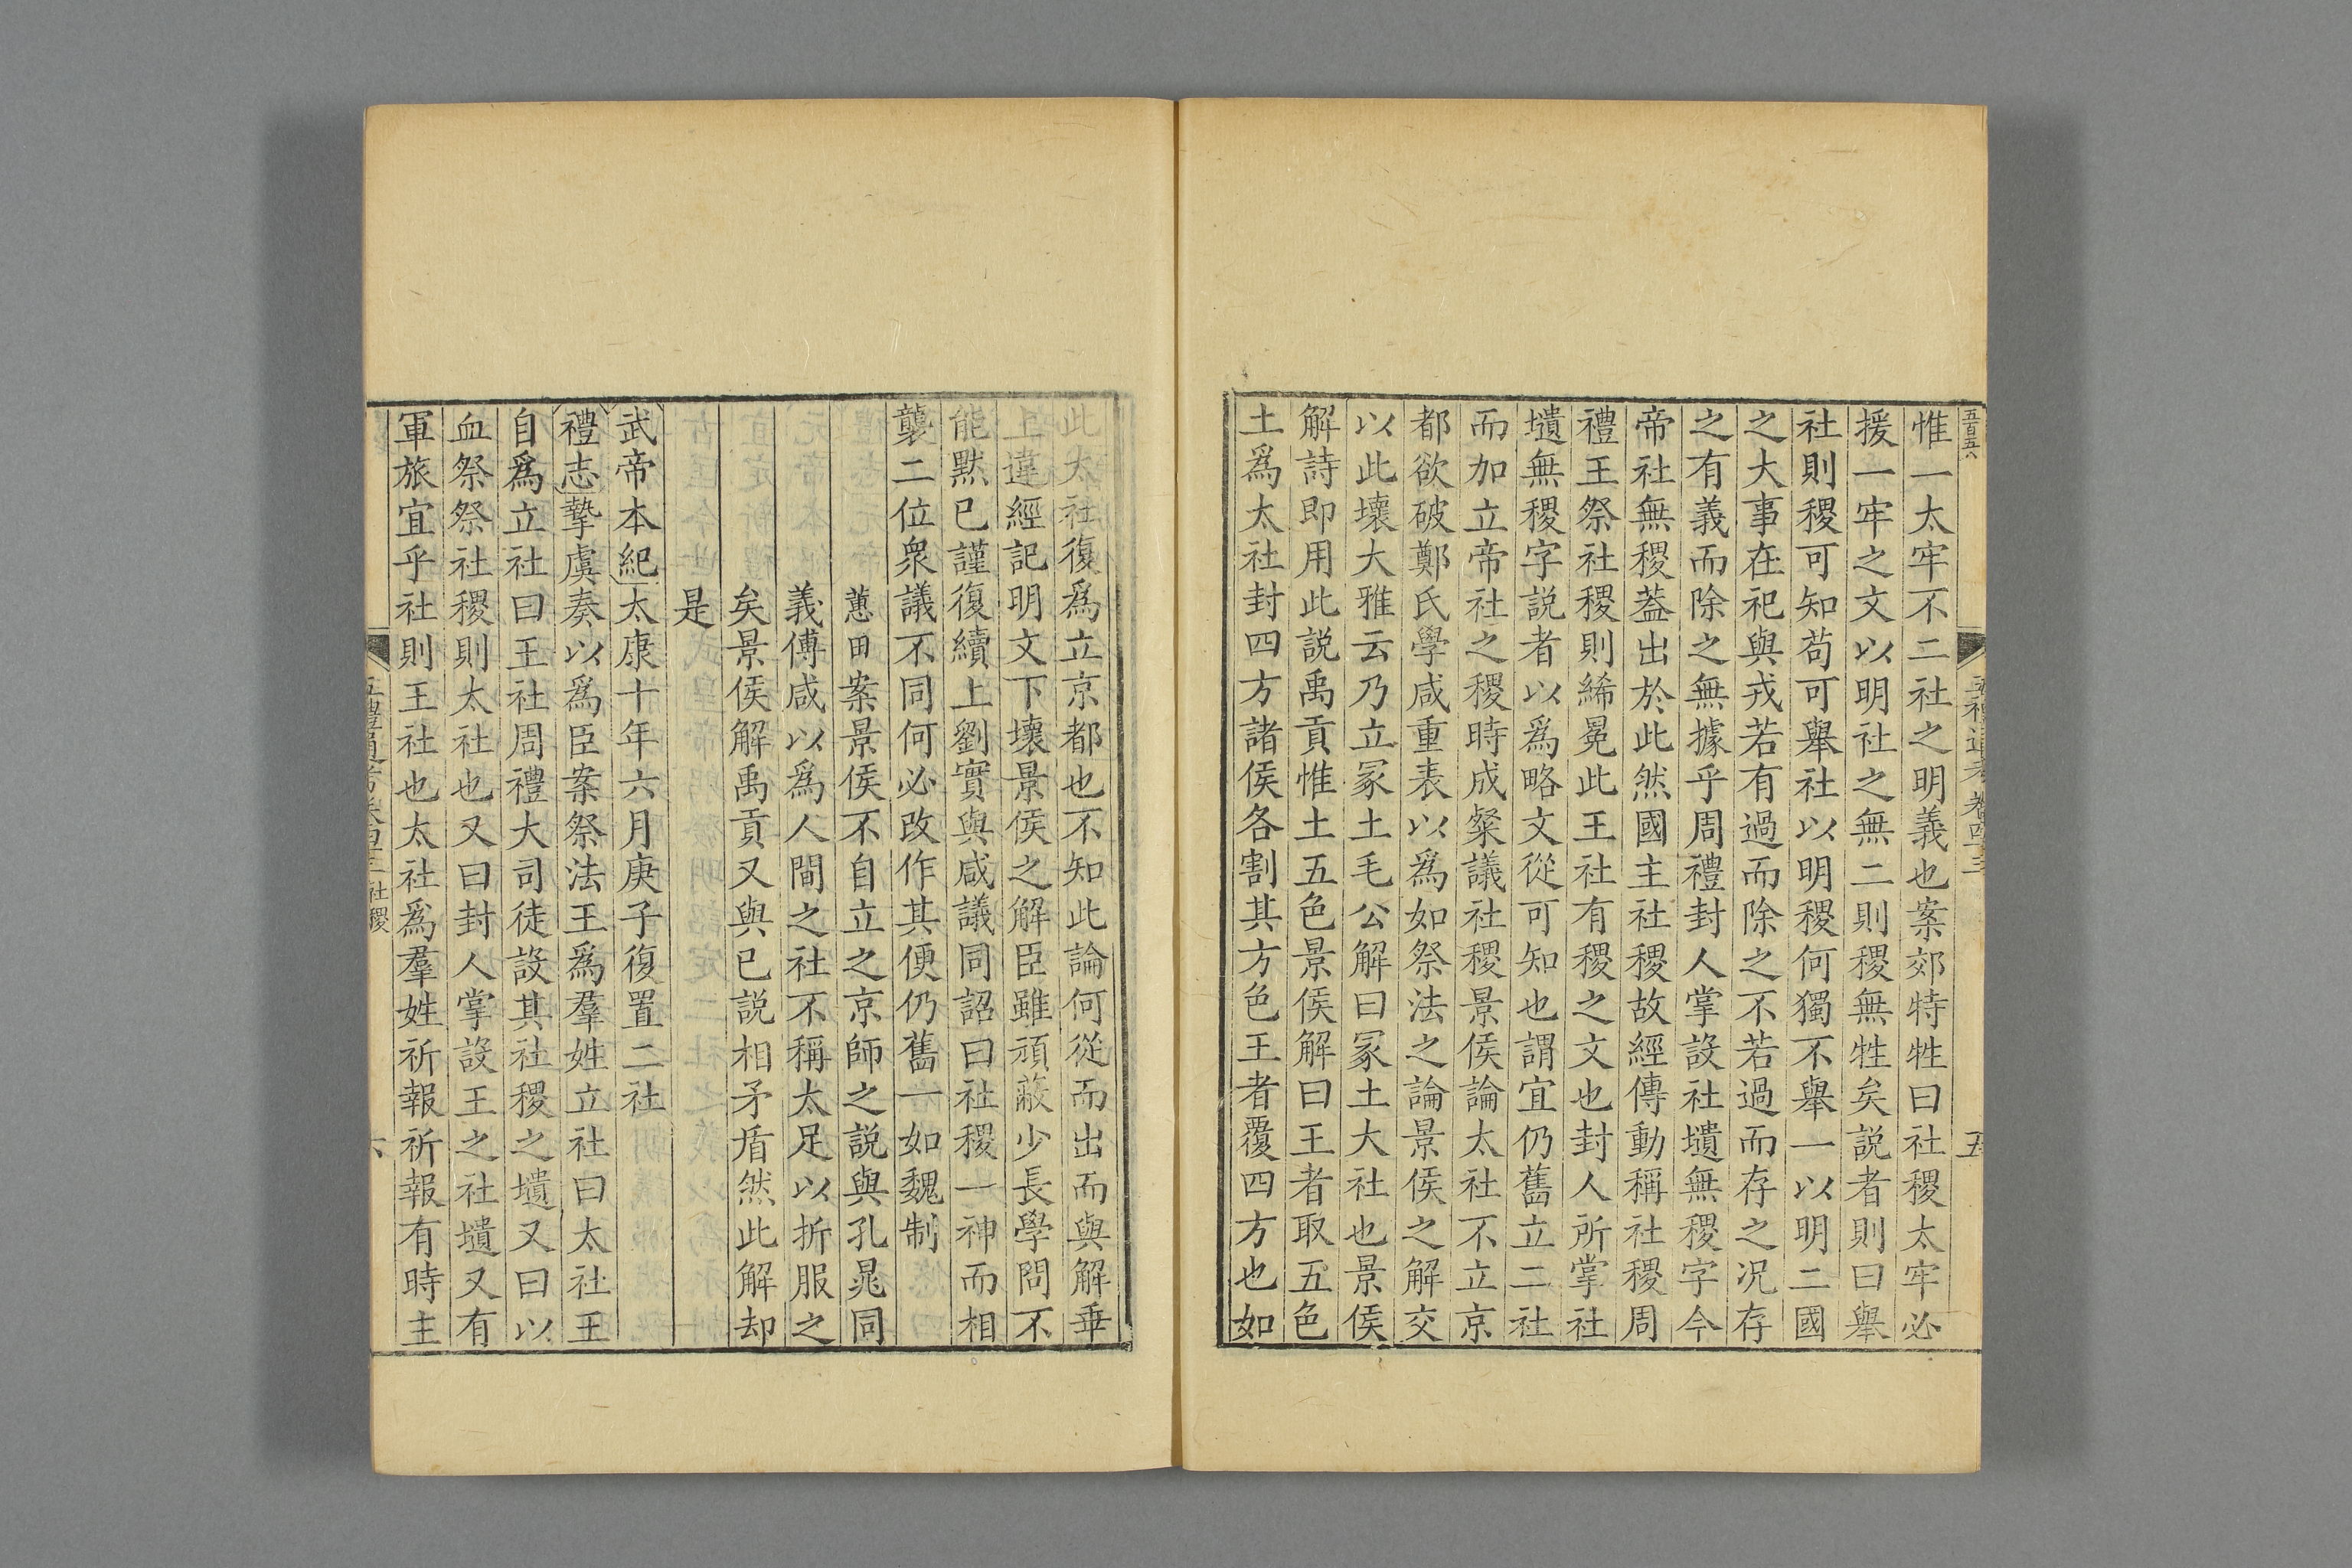 五禮通考 卷四十三
五
惟一太牢不二社之明義也案郊特牲曰社稷太牢必
援一牢之文以明社之無二則稷無牲矣説者則曰舉
社則稷可知苟可舉社以明稷何獨不舉一以明二國
之大事在祀與戎若有過而除之不若過而存之况存
之有義而除之無據乎周禮封人掌設社壝無稷字今
帝社無稷葢出於此然國主社稷故經傳動稱社稷周
禮王祭社稷則絺冕此王社有稷之文也封人所掌社
壝無稷字説者以爲略文從可知也謂宜仍舊立二社
而加立帝社之稷時成粲議社稷景侯論太社不立京
都欲破鄭氏學咸重表以爲如祭法之論景侯之解交
以此壞大雅云乃立冡土毛公解曰冡土大社也景侯
解詩即用此説禹貢惟土五色景侯解曰王者取五色
土爲太社封四方諸侯各割其方色王者覆四方也如
此太社復爲立京都也不知此論何從而出而與解乖
上違經記明文下壞景侯之解臣雖頑蔽少長學問不
能默已謹復續上劉實與咸議同詔曰社稷一神而相
襲二位衆議不同何必改作其便仍舊一如魏制
蕙田案景侯不自立之京師之説與孔晁同
義傅咸以爲人間之社不稱太足以折服之
矣景侯解禹貢又與已説相矛盾然此解却
是
武帝本紀太康十年六月庚子復置二社
禮志摯虞奏以爲臣案祭法王爲羣姓立社曰太社王
自爲立社曰王社周禮大司徒設其社稷之壝又曰以
血祭祭社稷則太社也又曰封人掌設王之社壝又有
軍旅宜乎社則王社也太社爲羣姓祈報祈報有時主
社稷
六